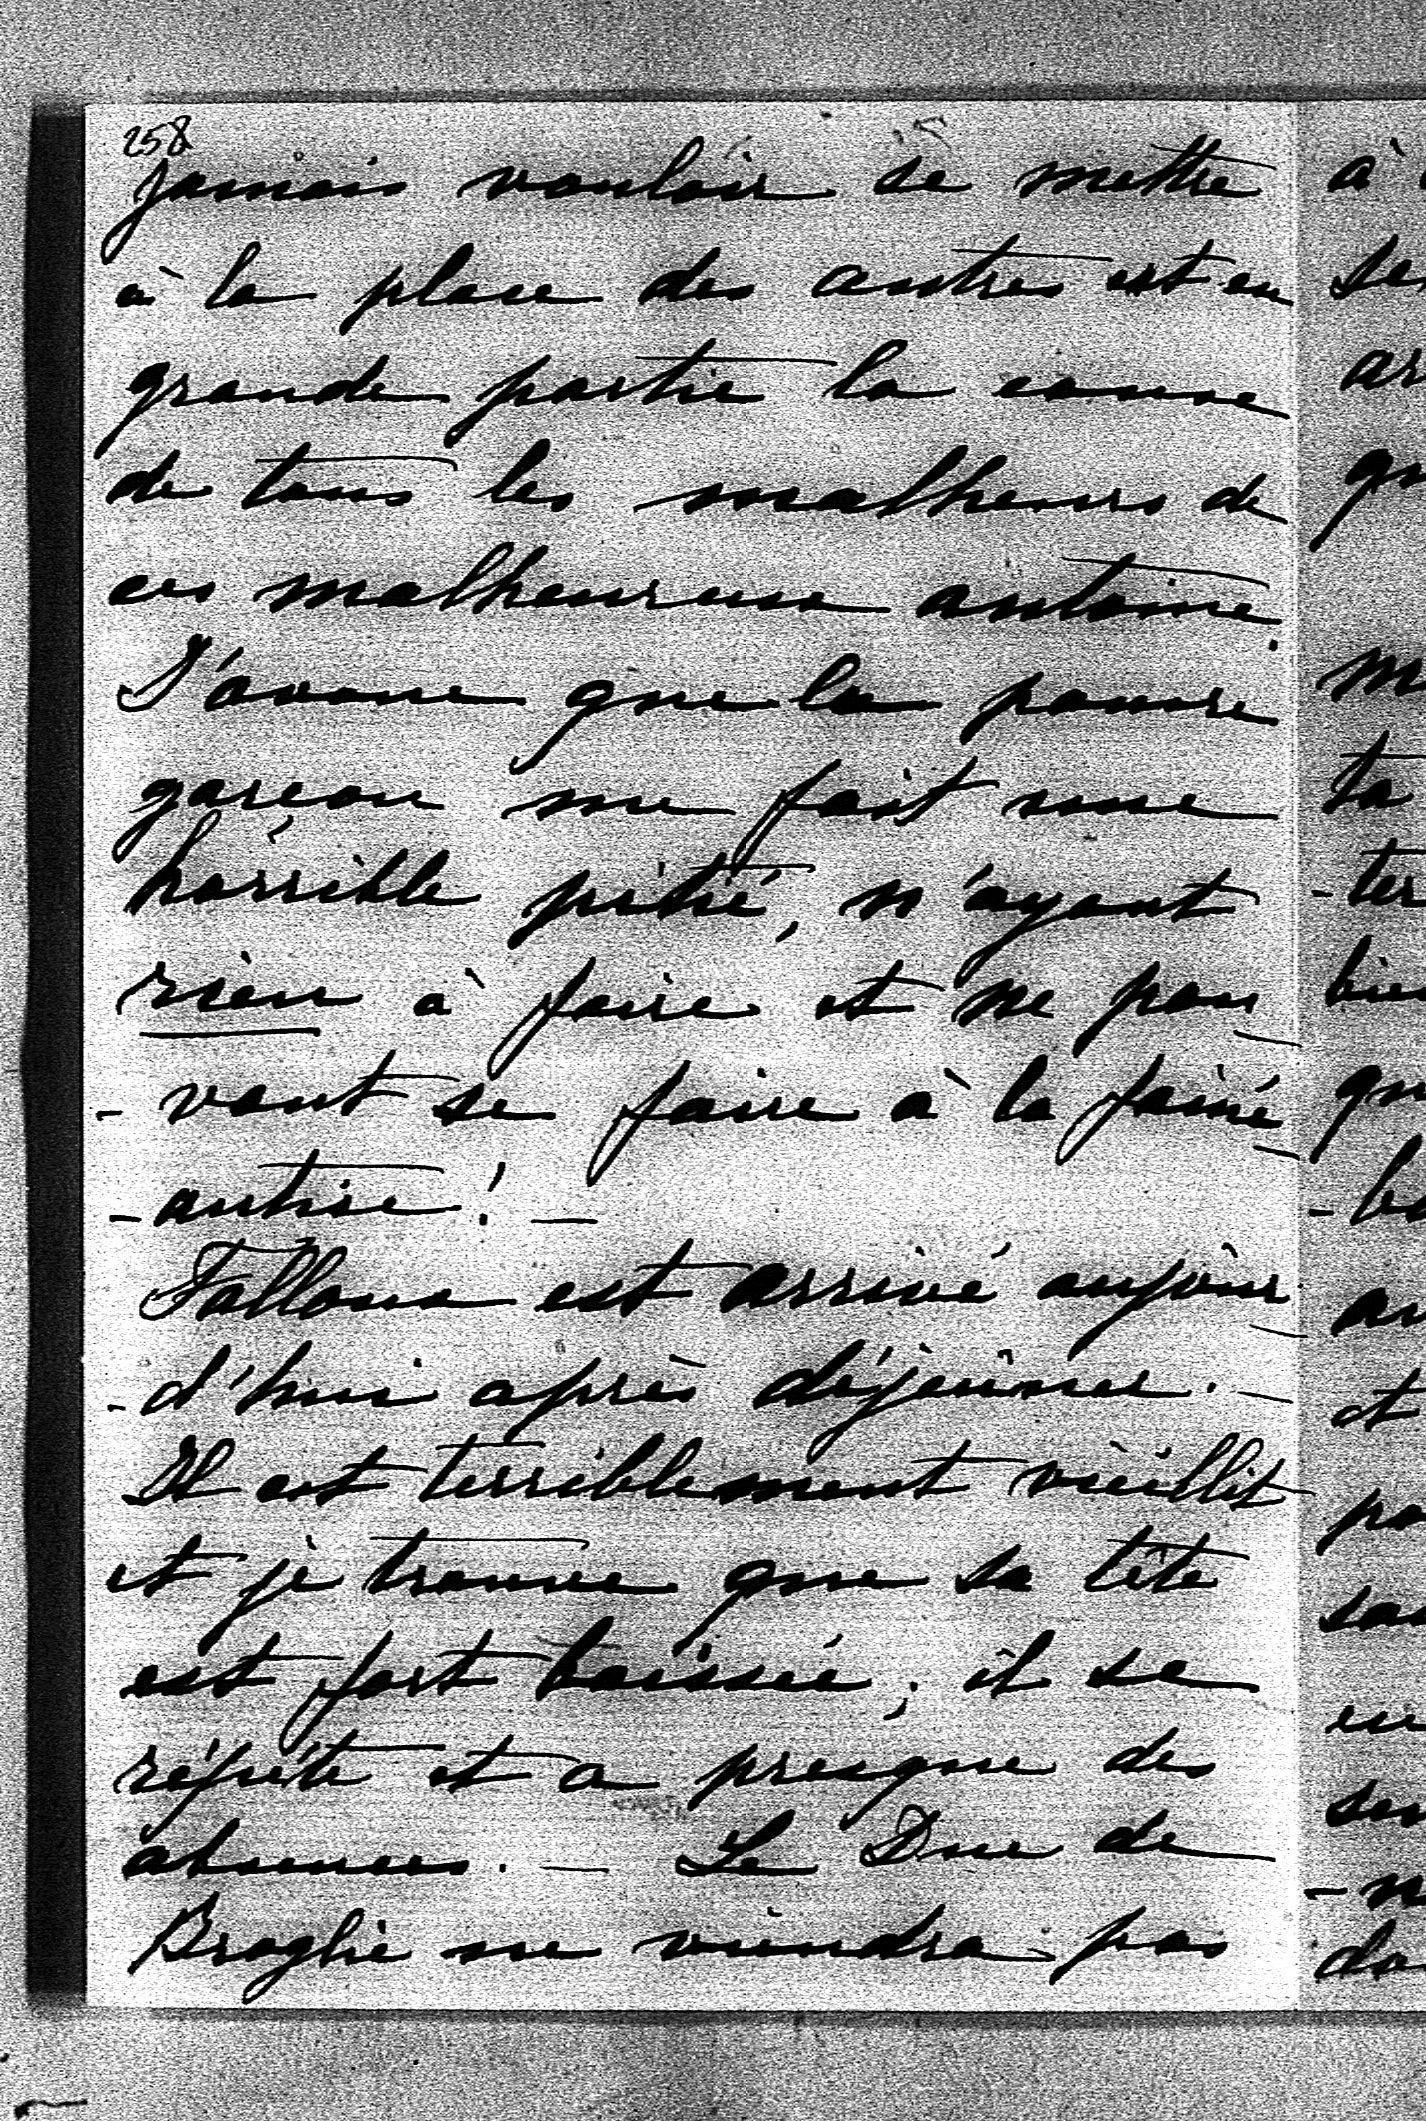 258
jamais vouloir se mettre
à la place des autres est en
grande partie la cause
de tous les malheurs de
ces malheureux antoine.
J'avoue que le pauvre
garcon me fait une
horrible pitié, n'ayant
rien à faire et ne pou
- vant se faire à la fainé
- antise! —
Falloux est arrivé aujour
- d'hui après déjeûner. —
Il est terriblement vieillit
et je trouve que sa tête
est fort baissée; il se
répéte et a presque des
absences. — Le Duc de
Broglie ne viendra pas